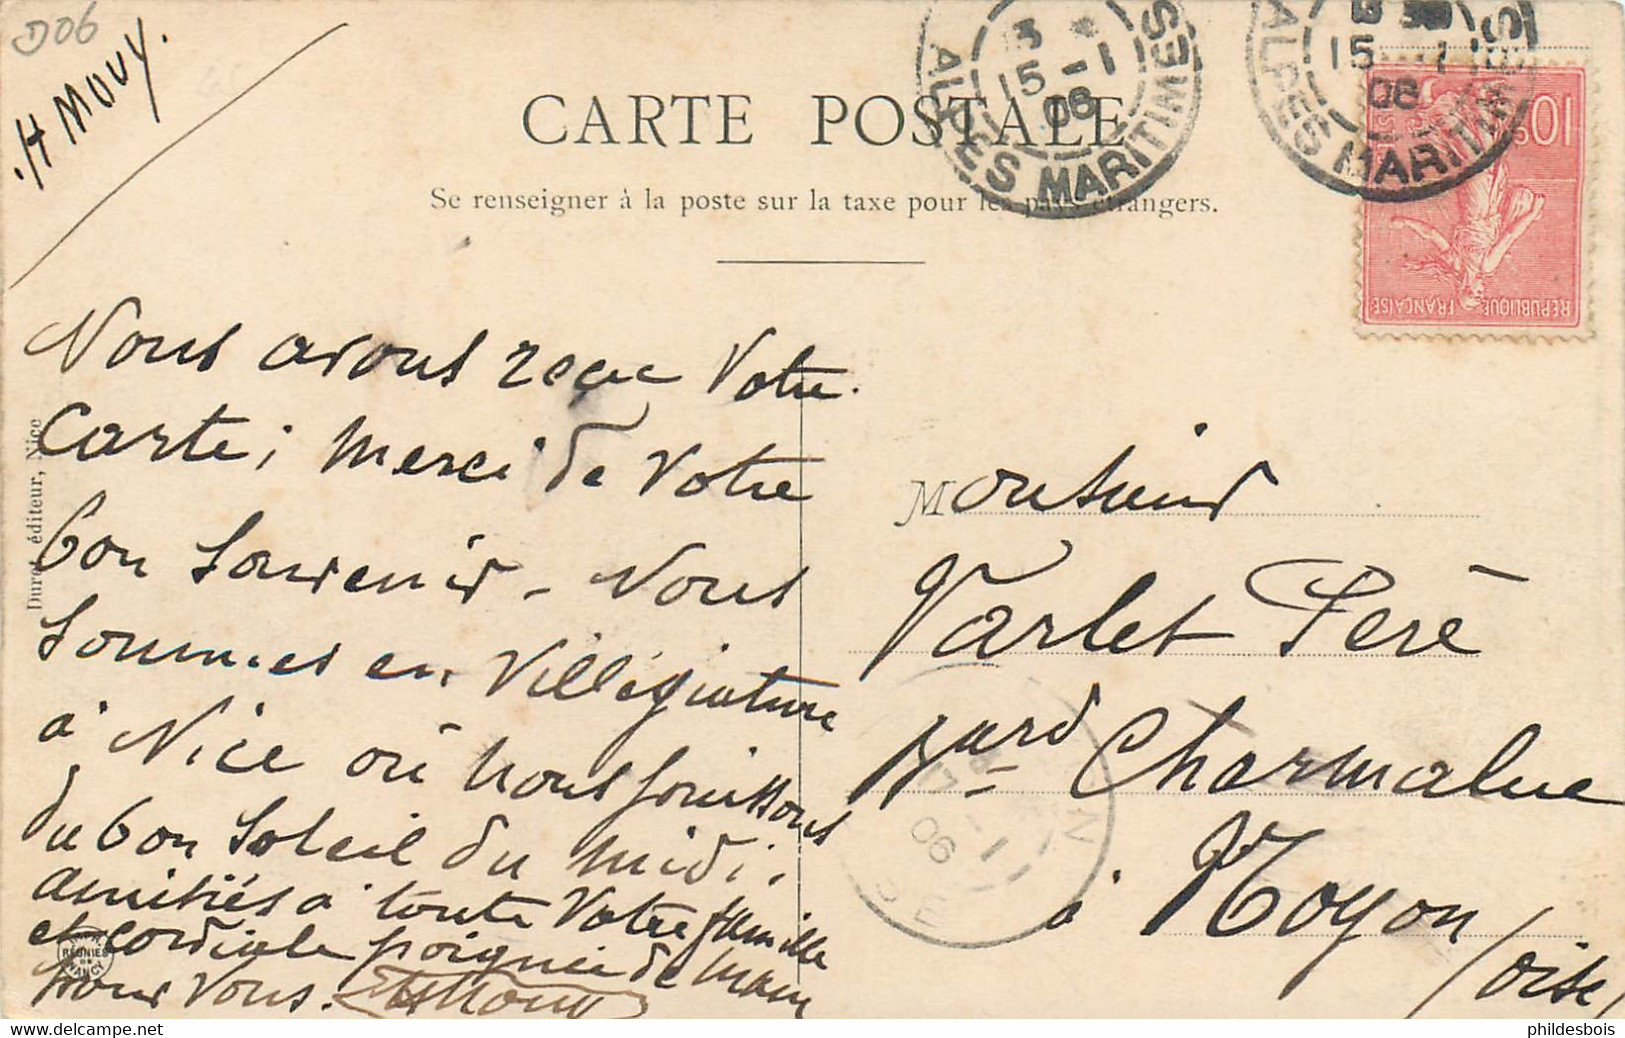 D06
H Mouy.
CARTE POSTALE
Se renseigner à la poste sur la taxe pour les pays étrangers.
15 -1
06
ALPES MARITIMES
15 -1
06
ALPES MARITIMES
10c
REPUBLIQUE FRANÇAISE
Nous avons reçu Votre
Carte; Merci de Votre
bon Souvenir - Nous
Sommes en Villégiature
à Nice où nous jouissons
du bon Soleil du midi.
Amitiés à toute Votre famille
et cordiale poignée de main
pour Vous. HMouy
Duret éditeur, Nice
RÉUNIES
DE
NANCY
Monsieur
Varlet Père
Bard Charmolue
à Noyon
(Oise)
06
phildesbois